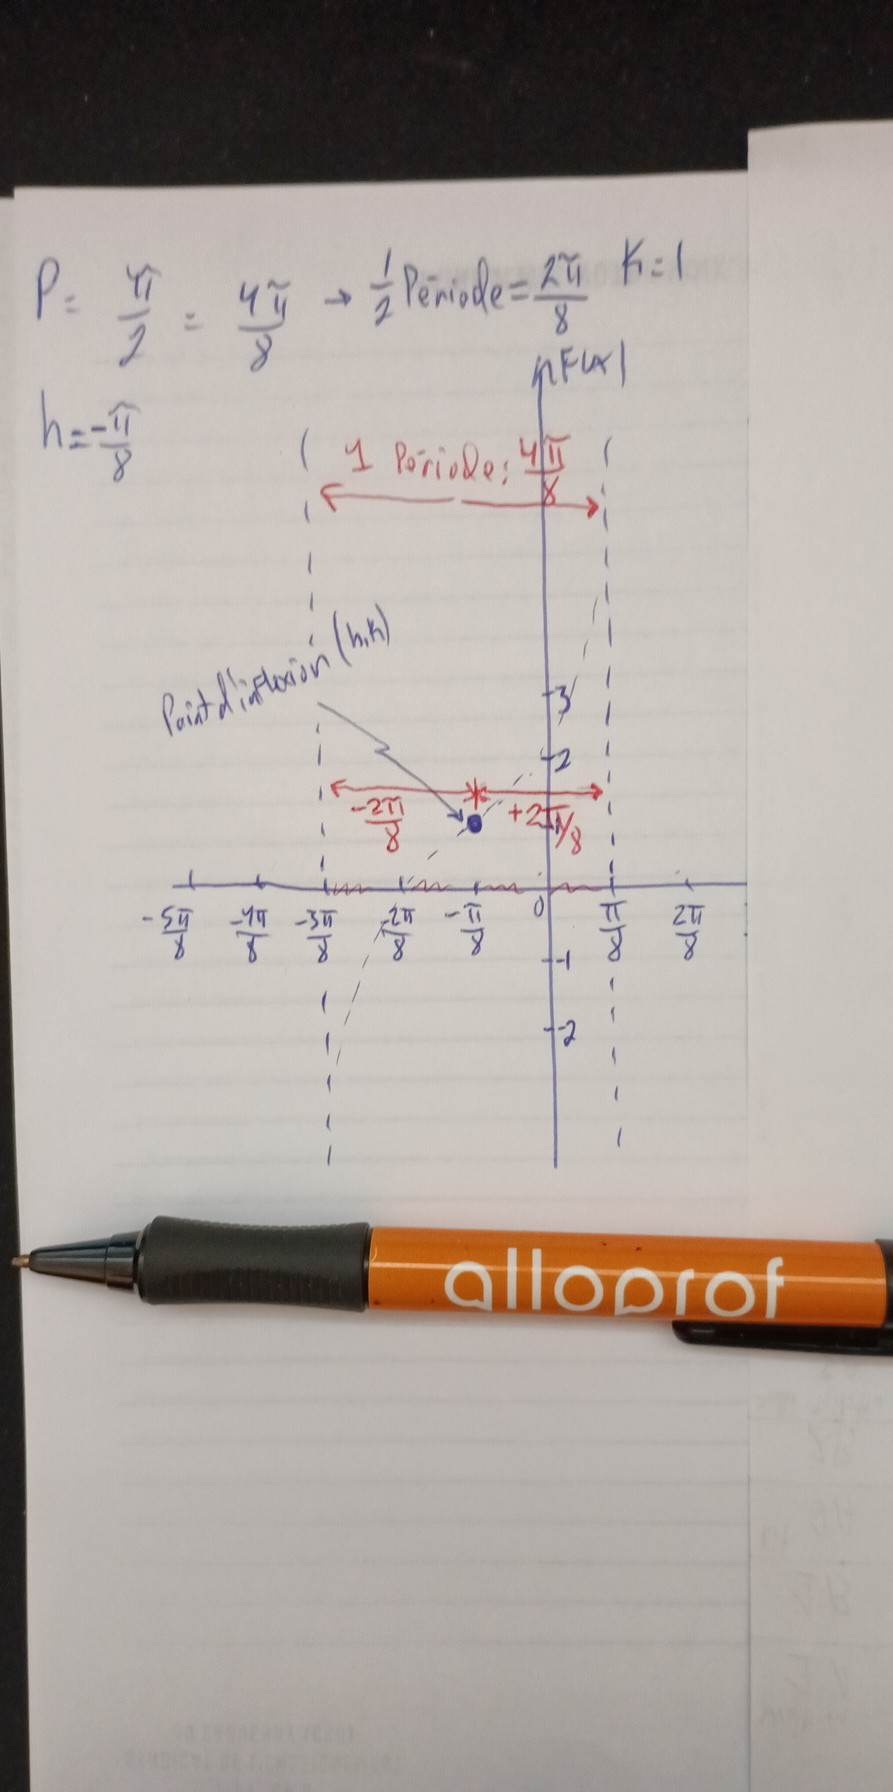 P = π/2 = 4π/8 → 1/2 Période = 2π/8 K = 1
h = -π/8
F(x)
1 Période: 4π/8
Point d'inflexion (h,k)
3
2
-2π/8 +2π/8
1
-5π/8 -4π/8 -3π/8 -2π/8 -π/8 0 π/8 2π/8
-1
-2
alloprof